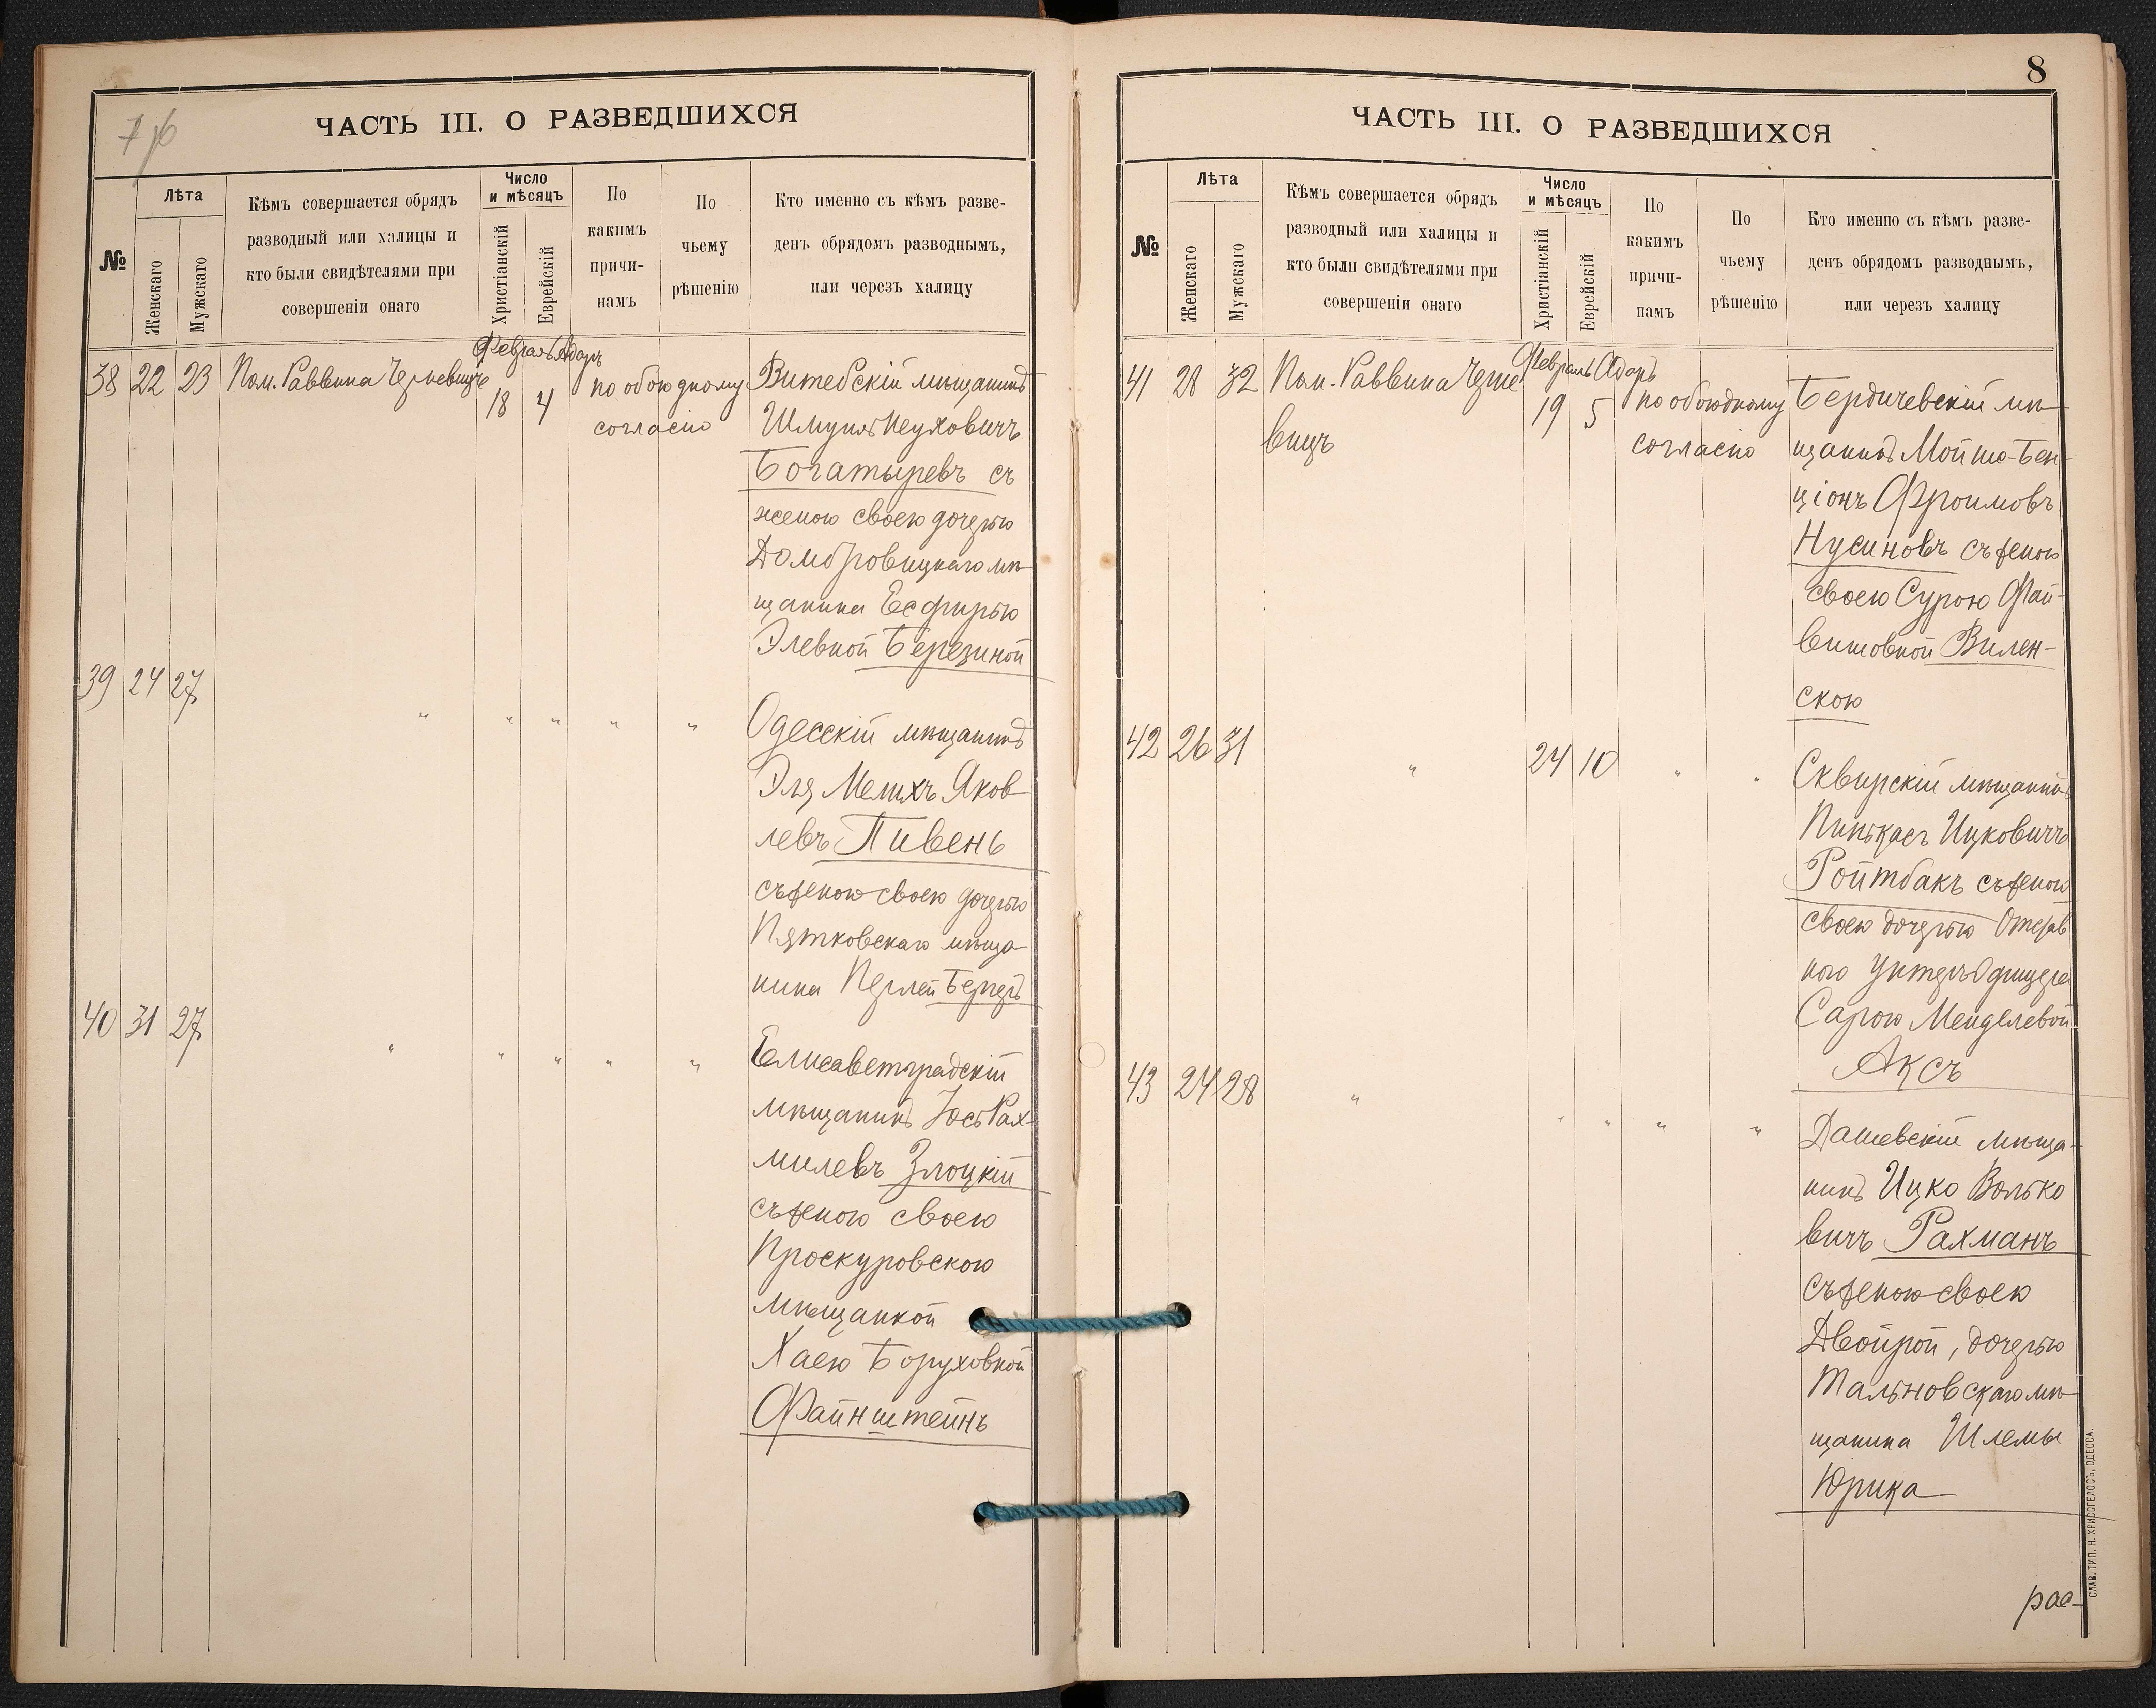 7 об
ЧАСТЬ III. О РАЗВЕДШИХСЯ
№
Лѣта
Женскаго
Мужскаго
Кѣмъ совершается обрядъ
разводный или халицы и
кто были свидѣтелями при
совершеніи онаго
Число
и мѣсяцъ
Христіанскій
Еврейскій
По
какимъ
причи-
намъ
По
чьему
рѣшенію
Кто именно съ кѣмъ разве-
денъ обрядомъ разводнымъ,
или черезъ халицу
Февраль Адаръ
38 22 23 Пом. Раввина 18 4 по обоюдному
согласію
Витебскій мѣщанинъ
Шмуиль
Богатыревъ съ
женою своею дочерью
Домбровицкаго мѣ-
щанина Есфирью
Элевной Березиной
39 24 27 " " " " "
Одесскій мѣщанинъ
Эля Мелихъ Яков-
левъ Пивень
съ женою своею дочерью
Пятковскаго мѣща-
нина Перлей Бергеръ
40 31 27 " " " " "
Елисаветградскій
мѣщанинъ Іось Рах-
милевъ Злоцкій
съ женою своею
Проскуровскою
мѣщанкой
Хаею Боруховной
Файнштейнъ
8
ЧАСТЬ III. О РАЗВЕДШИХСЯ
№
Лѣта
Женскаго
Мужскаго
Кѣмъ совершается обрядъ
разводный или халицы и
кто были свидѣтелями при
совершеніи онаго
Число
и мѣсяцъ
Христіанскій
Еврейскій
По
какимъ
причи-
намъ
По
чьему
рѣшенію
Кто именно съ кѣмъ разве-
денъ обрядомъ разводнымъ,
или черезъ халицу
Февраль Адаръ
41 28 32 Пом. Раввина 19 5 по обоюдному
согласію
Бердичевскій мѣ-
щанинъ Мойше-Бен-
ціонъ Фроимовъ
Нусиновъ съ женою
своею Сурою Фай-
вишовной Вилен-
скою
42 26 31 " 24 10 " "
Сквирскій мѣщанинъ
Пинькасъ Ицковичъ
Ройтбакъ съ женою
своею дочерью Отстав
ного Унтеръ Офицера
Сарою Менделевой
Аксъ
43 24 28 " " " " "
Дашевскій мѣща-
нинъ Ицко Волько
вичъ Рахманъ
съ женою своею
Двойрой, дочерью
Тальновскаго мѣ-
щанина Шлемы
Юрика
рас-
СЛАВ. ТИП. Н. ХРИСОГЕЛОСЪ, ОДЕССА.